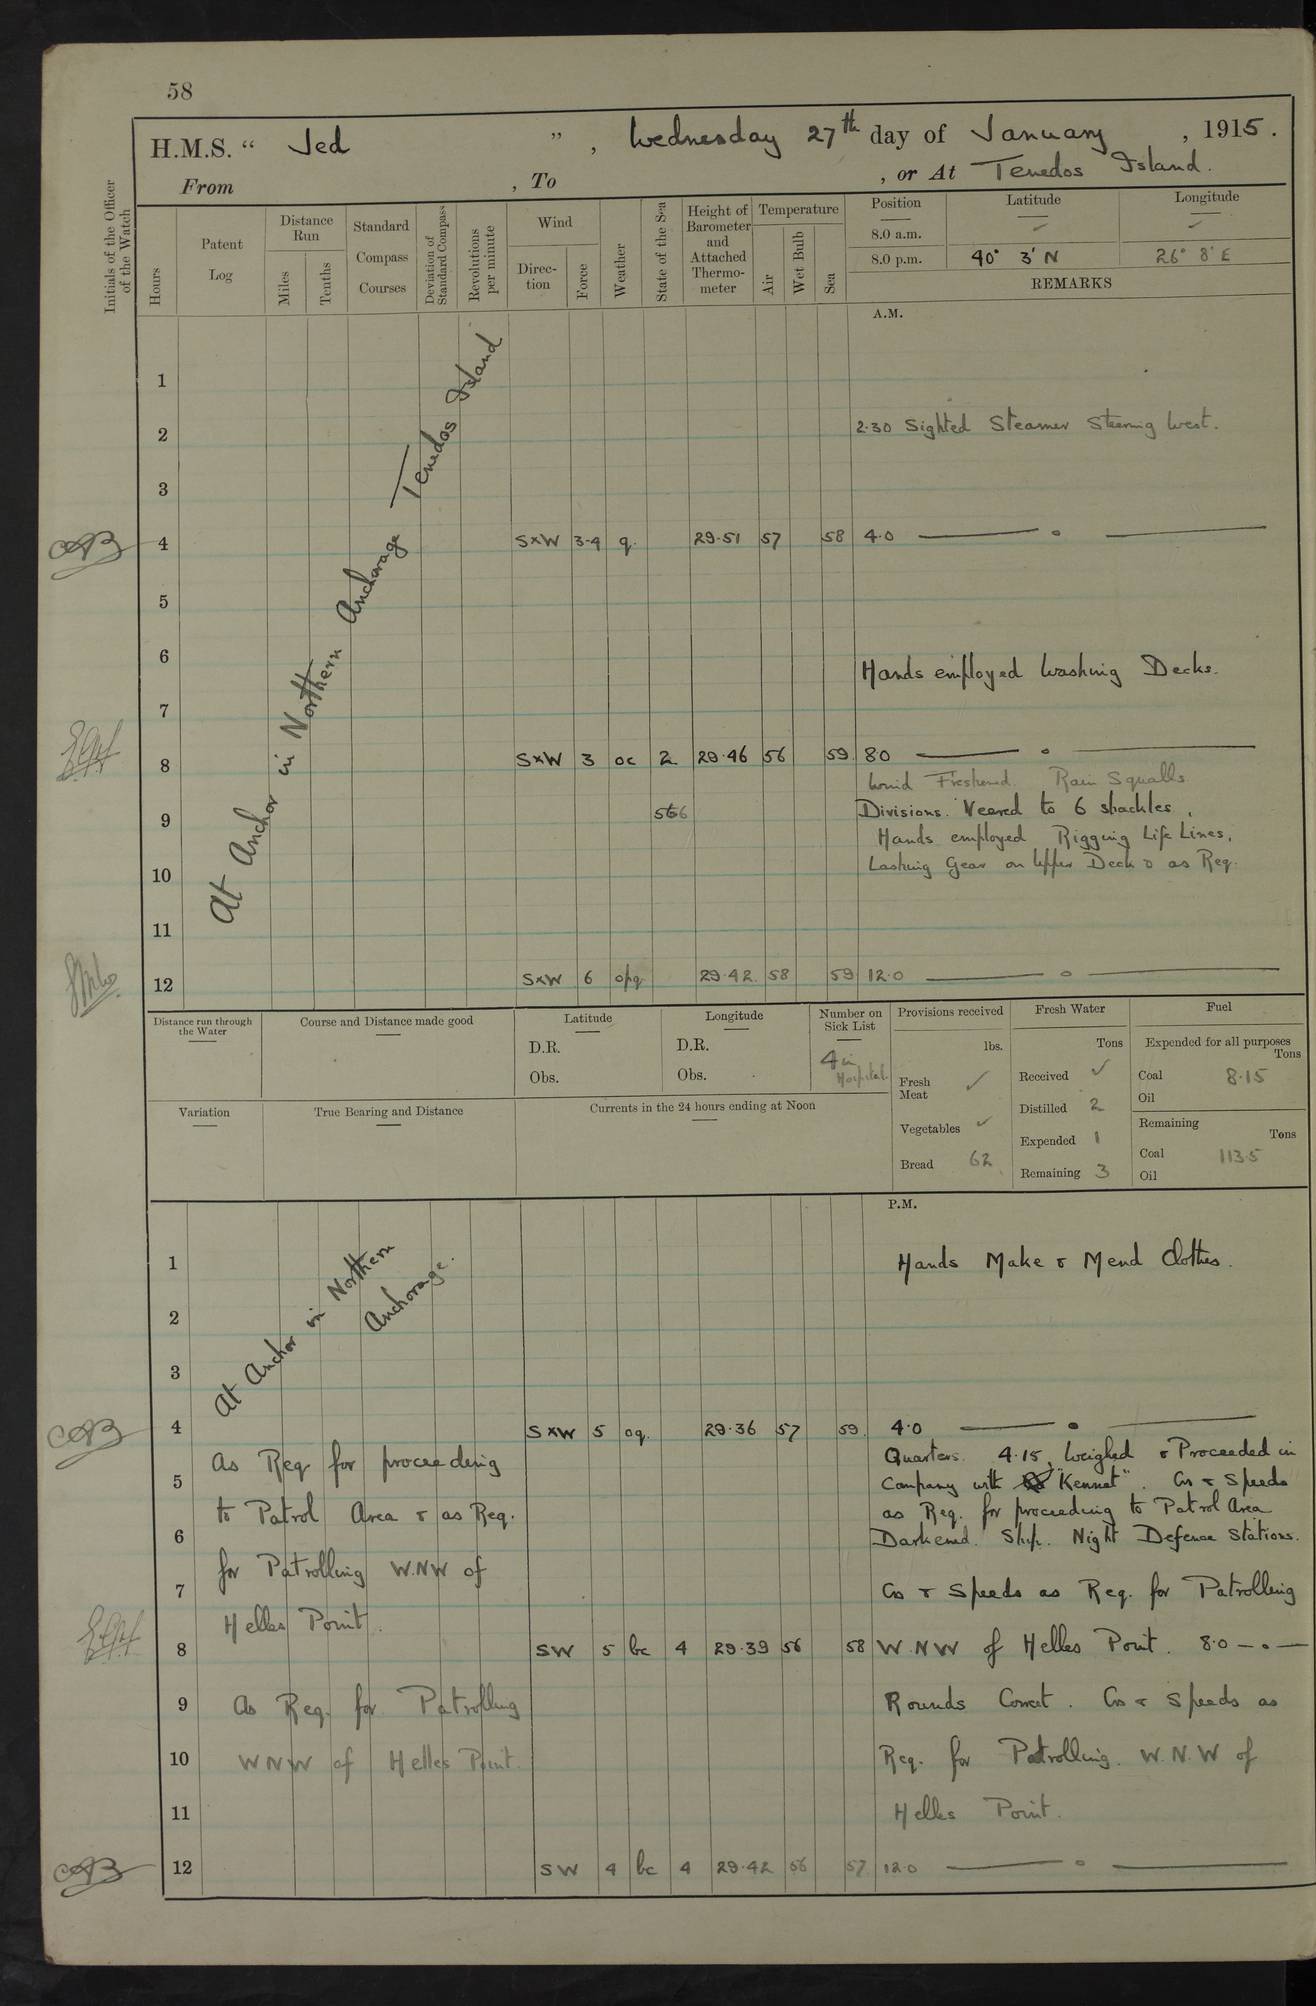 58
H.M.S. “ Jed ”, Wednesday 27th day of January, 1915.
From , To , or At Tenedos Island.
Initials of the Officer of the Watch
Hours
Patent Log
Distance Run
Miles
Tenths
Standard Compass Courses
Deviation of Standard Compass
Revolutions per minute
Wind
Direc-tion
Force
Weather
State of the Sea
Height of Barometer and Attached Thermo-meter
Temperature
Air
Wet Bulb
Sea
Position Latitude Longitude
8.0 a.m. ✓ ✓
8.0 p.m. 40° 3' N 26° 8' E
REMARKS
A.M.
At Anchor in Northern Anchorage Tenedos Island
1
2 2.30 Sighted Steamer Steering West.
3
4 SxW 3-4 q. 29.51 57 58 4.0 — o —
5
6 Hands employed Washing Decks.
7
8 SxW 3 oc 2 29.46 56 59 8.0 — o —
Wind Freshened. Rain Squalls
9 566 Divisions. Veered to 6 shackles,
Hands employed Rigging Life Lines,
10 Lashing Gear on Upper Deck & as Req.
11
12 SxW 6 opq 29.42 58 59 12.0 — o —
Distance run through the Water
Course and Distance made good
Latitude
D.R.
Obs.
Longitude
D.R.
Obs.
Number on Sick List
4 in Hospital.
Provisions received
lbs.
Fresh Meat ✓
Vegetables ✓
Bread 62
Fresh Water
Tons
Received ✓
Distilled 2
Expended 1
Remaining 3
Fuel
Expended for all purposes
Tons
Coal 8.15
Oil
Remaining
Tons
Coal 113.5
Oil
Variation
True Bearing and Distance
Currents in the 24 hours ending at Noon
P.M.
At Anchor in Northern Anchorage.
1 Hands Make & Mend Clothes.
2
3
4 SxW 5 oq. 29.36 57 59. 4.0 — o —
As Req for proceeding Quarters. 4.15, Weighed & Proceeded in
5 Company with "Kennet". Cos & Speeds
to Patrol Area & as Req. as Req. for proceeding to Patrol Area
6 Darkened Ship. Night Defence Stations.
for Patrolling WNW of
7 Cos & Speeds as Req. for Patrolling
Helles Point.
8 SW 5 bc 4 29.39 56 58 W.N.W of Helles Point. 8.0 — o —
9 As Req. for Patrolling Rounds Correct. Cos & Speeds as
10 WNW of Helles Point. Req. for Patrolling. W.N.W of
11 Helles Point.
12 SW 4 bc 4 29.42 56 57 12.0 — o —